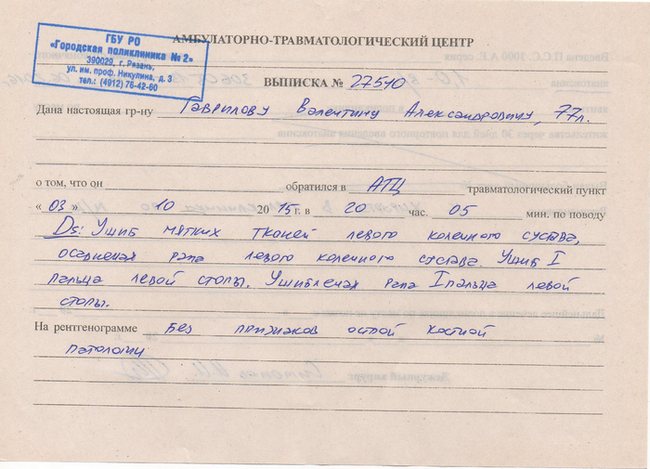 ГБУ РО
«Городская поликлиника № 2»
390029, г. Рязань,
ул. им. проф. Никулина, д. 3
тел.: (4912) 76-42-60
АМБУЛАТОРНО-ТРАВМАТОЛОГИЧЕСКИЙ ЦЕНТР
ВЫПИСКА № 27540
Дана настоящая гр-ну Гаврилову Валентину Александровичу, 77л.
о том, что он обратился в АТЦ травматологический пункт
« 03 » 10 2015 г. в 20 час. 05 мин. по поводу
Ds: Ушиб мягких тканей левого коленного сустава,
осадненая рана левого коленного сустава. Ушиб I
пальца левой стопы. Ушибленая рана I пальца левой
стопы.
На рентгенограмме Без признаков острой костной
патологии